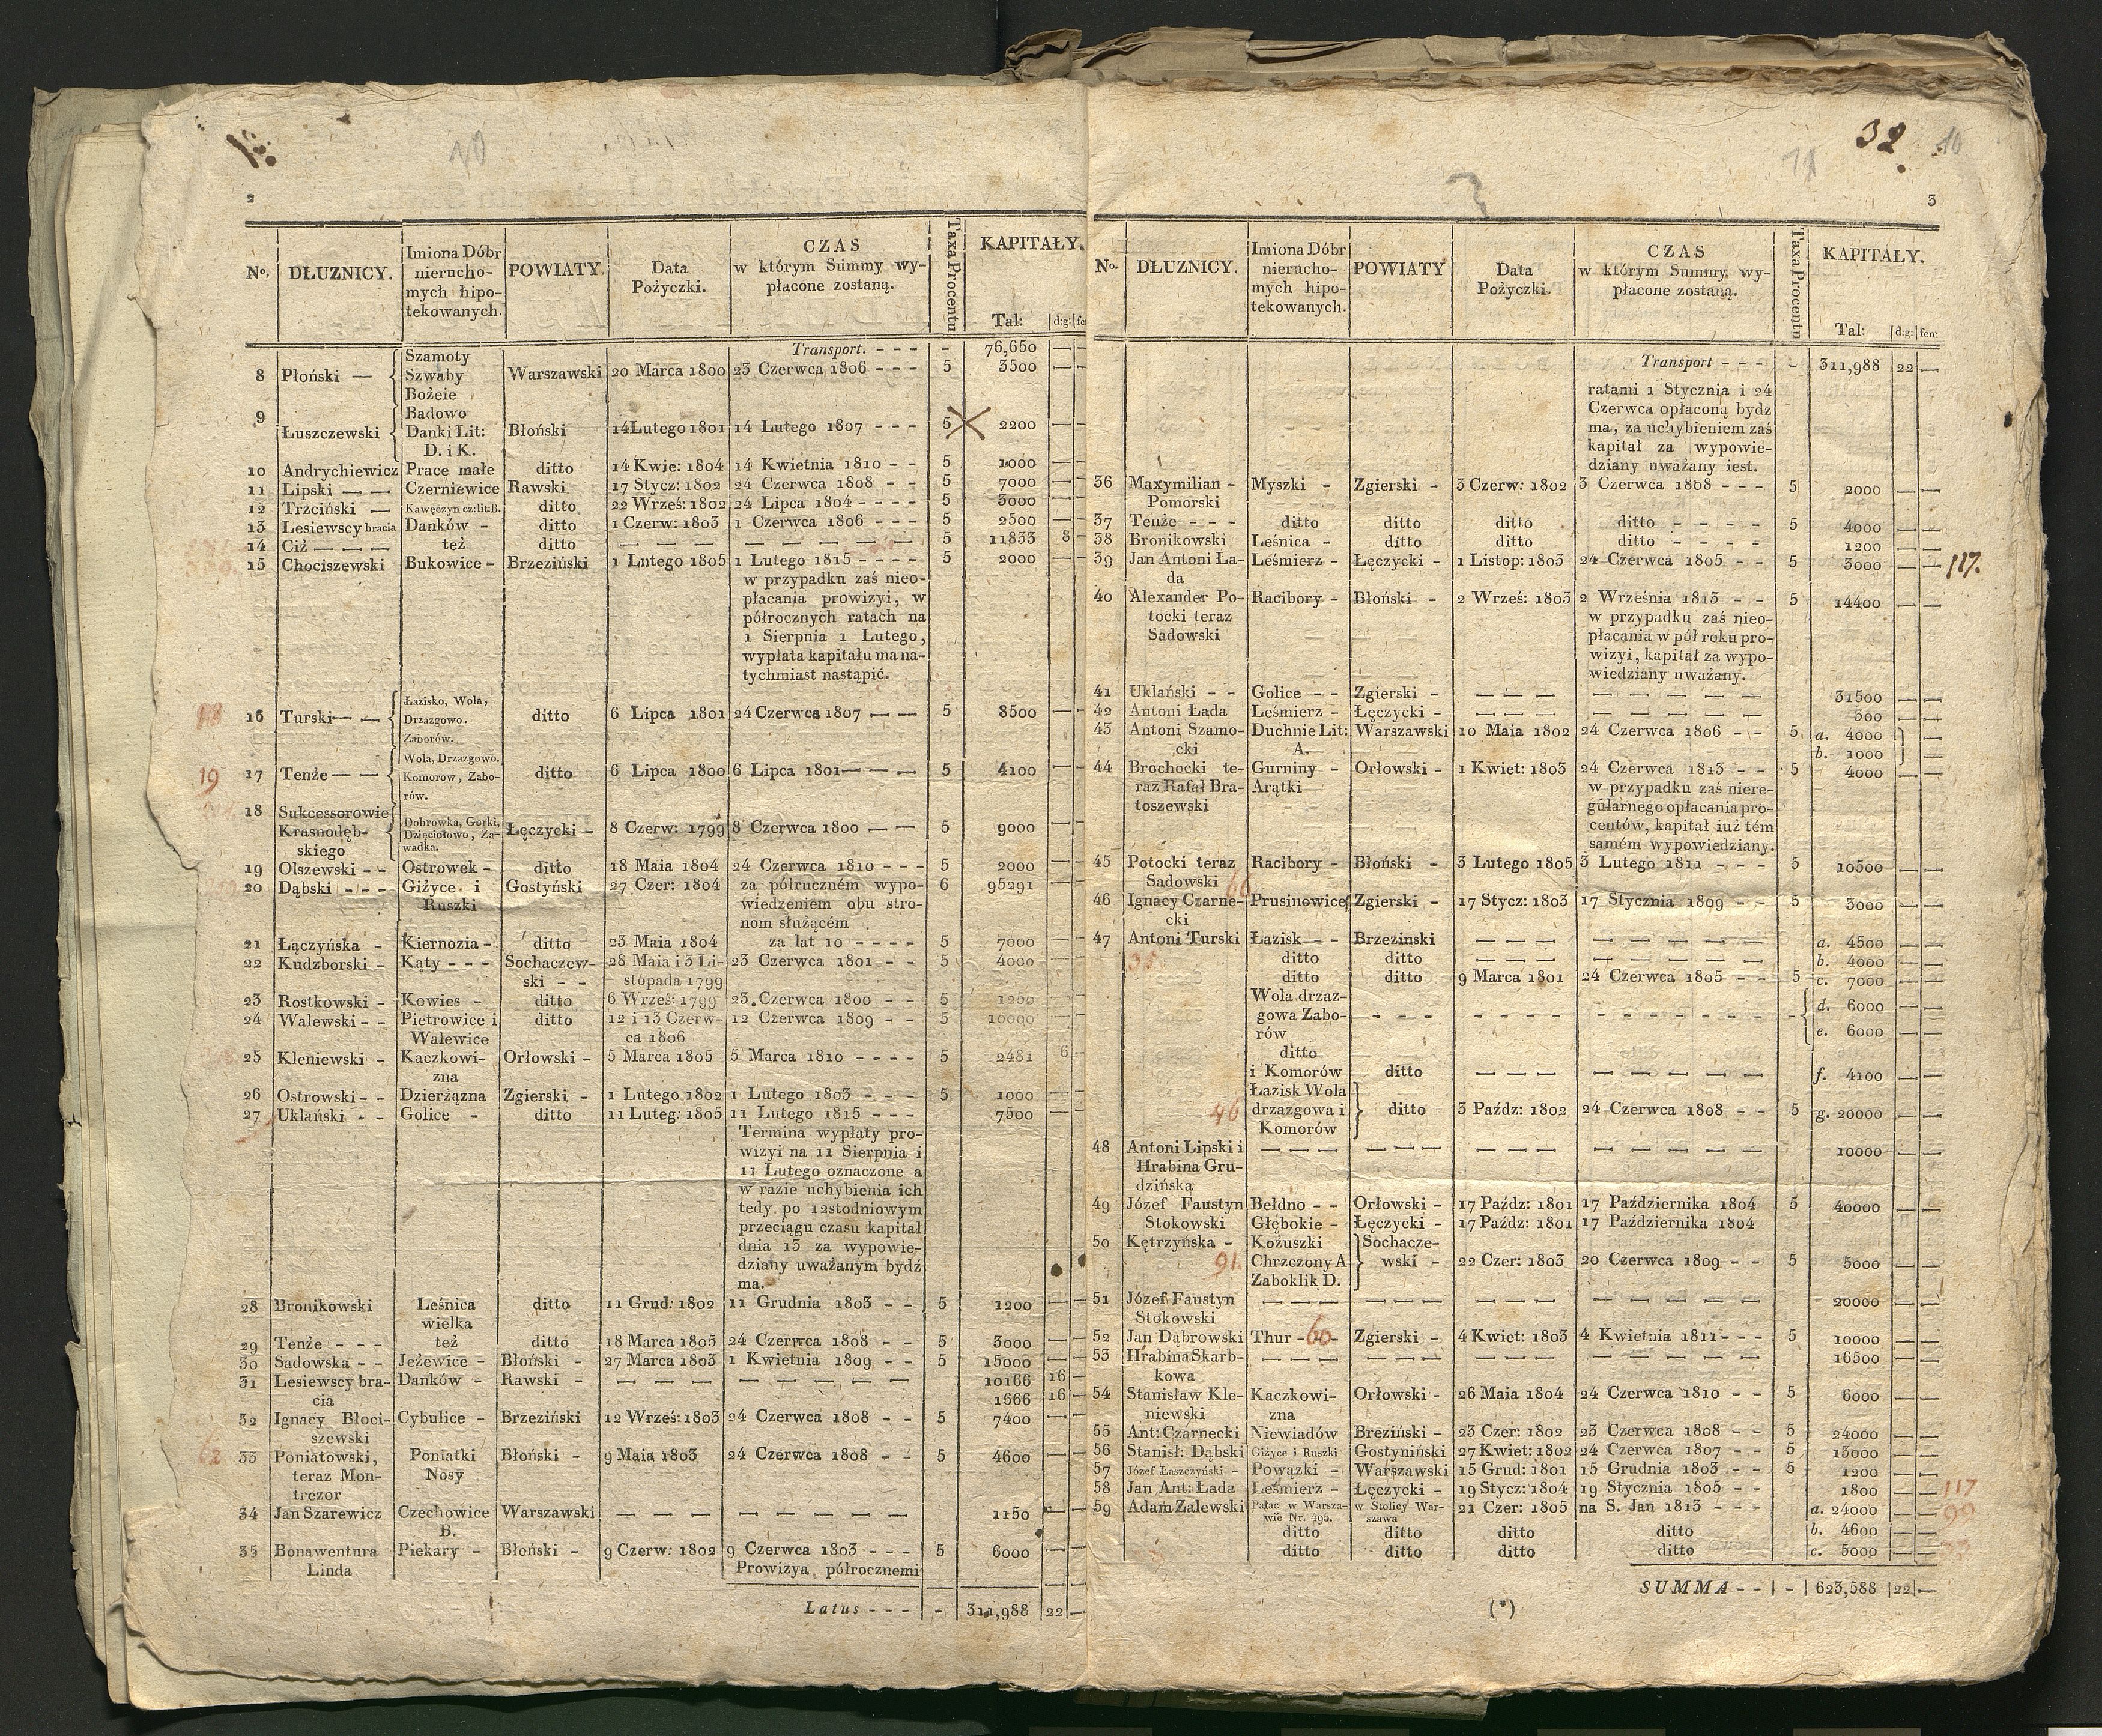 2
N<sup>o</sup>. DŁUZNICY. Imiona Dóbr nierucho- mych hipo- tekowanych. POWIATY. Data Pożyczki. CZAS w którym Summy wy- płacone zostaną. Taxa Procentu KAPITAŁY. Tal: d:g: fe
Transport. - - - - 76,650 — —
8 Płoński — { Szamoty Szwaby Bożeie Warszawski 20 Marca 1800 23 Czerwca 1806 - - - 5 3500 — —
9 Łuszczewski { Badowo Danki Lit: D. i K. Błoński 14 Lutego 1801 14 Lutego 1807 - - - 5 2200 — —
10 Andrychiewicz Prace małe ditto 14 Kwie: 1804 14 Kwietnia 1810 - - 5 1000 — —
11 Lipski — — Czerniewice Rawski 17 Stycz: 1802 24 Czerwca 1808 - - 5 7000 — —
12 Trzciński — Kawęczyn cz: lit: B. ditto 22 Wrześ: 1802 24 Lipca 1804 - - - - 5 3000 — —
13 Lesiewscy bracia Danków - ditto 1 Czerw: 1803 1 Czerwca 1806 - - - 5 2500 — —
14 Ciż — — — też ditto — — — — — — — — — — 5 11833 8 -
15 Chociszewski Bukowice - Brzeziński 1 Lutego 1805 1 Lutego 1815 - - - - 5 2000 — —
w przypadku zaś nieo-
płacania prowizyi, w
półrocznych ratach na
1 Sierpnia 1 Lutego,
wypłata kapitału ma na-
tychmiast nastąpić.
16 Turski — — { Łazisko, Wola, Drzazgowo. Zaborów. ditto 6 Lipca 1801 24 Czerwca 1807 — — 5 8500 — —
17 Tenże — — { Wola, Drzazgowo. Komorow, Zabo- rów. ditto 6 Lipca 1800 6 Lipca 1801 — — — 5 4100 — —
18 Sukcessorowie Krasnodęb- skiego { Dobrowka, Gorki, Dzięciołowo, Za- wadka. Łęczycki - 8 Czerw: 1799 8 Czerwca 1800 — — 5 9000 — —
19 Olszewski - - Ostrowek - ditto 18 Maia 1804 24 Czerwca 1810 - - - 5 2000 — —
20 Dąbski - - - Giżyce i Ruszki Gostyński 27 Czer: 1804 za półruczném wypo- wiedzeniem obu stro- nom służącém 6 95291 — —
21 Łączyńska - Kiernozia - ditto 23 Maia 1804 za lat 10 - - - - 5 7000 — —
22 Kudzborski - Kąty - - - Sochaczew- ski - - 28 Maia i 3 Li- stopada 1799 23 Czerwca 1801 - - 5 4000 — —
23 Rostkowski - Kowies - ditto 6 Wrześ: 1799 23 Czerwca 1800 - - 5 1250 — —
24 Walewski - - Pietrowice i Walewice ditto 12 i 13 Czerw- ca 1806 12 Czerwca 1809 - - 5 10000 — —
25 Kleniewski - Kaczkowi- zna Orłowski - 5 Marca 1805 5 Marca 1810 - - - - 5 2481 6 -
26 Ostrowski - - Dzierżązna Zgierski - 1 Lutego 1802 1 Lutego 1803 - - - - 5 1000 — —
27 Uklański - - Golice - ditto 11 Luteg: 1805 11 Lutego 1815 - - - 7500 — —
Termina wypłaty pro-
wizyi na 11 Sierpnia i
11 Lutego oznaczone a
w razie uchybienia ich
tedy po 12stodniowym
przeciągu czasu kapitał
dnia 13 za wypowie-
dziany uważanym bydź
ma.
28 Bronikowski Leśnica wielka ditto 11 Grud: 1802 11 Grudnia 1803 - - 5 1200 — —
29 Tenże - - - też ditto 18 Marca 1805 24 Czerwca 1808 - - 5 3000 — —
30 Sadowska - - Jeżewice - Błoński - 27 Marca 1803 1 Kwietnia 1809 - - 5 15000 — —
31 Lesiewscy bra- cia Danków - Rawski - — — — — — — — — — 10166 16 -
1666 16 -
32 Ignacy Błoci- szewski Cybulice - Brzeziński 12 Wrześ: 1803 24 Czerwca 1808 - - 5 7400 — —
62 33 Poniatowski, teraz Mon- trezor Poniatki Nosy Błoński - 9 Maia 1803 24 Czerwca 1808 - - 5 4600 — —
34 Jan Szarewicz Czechowice B. Warszawski — — — — — — — — — 1150 — —
35 Bonawentura Linda Piekary - Błoński - 9 Czerw: 1802 9 Czerwca 1803 - - - 5 6000 — —
Prowizya półrocznemi
Latus - - - - 311,988 22 —
32.
3
N<sup>o</sup>. DŁUZNICY. Imiona Dóbr nierucho- mych hipo- tekowanych. POWIATY Data Pożyczki. CZAS w którym Summy wy- płacone zostaną. Taxa Procentu KAPITAŁY. Tal: d:g: fen:
Transport - - - - 311,988 22 —
ratami 1 Stycznia i 24
Czerwca opłaconą bydz
ma, za uchybieniem zaś
kapitał za wypowie-
dziany uważany iest.
36 Maxymilian - Pomorski Myszki - Zgierski - 3 Czerw: 1802 3 Czerwca 1808 - - - 5 2000 — —
37 Tenże - - - ditto ditto ditto ditto - - - - 5 4000 — —
38 Bronikowski Leśnica - ditto ditto ditto - - - - 1200 — —
39 Jan Antoni Ła- da Leśmierz - Łęczycki - 1 Listop: 1803 24 Czerwca 1805 - - 5 3000 — — 117.
40 Alexander Po- tocki teraz Sadowski Racibory - Błoński - 2 Wrześ: 1803 2 Września 1813 - - 5 14400 — —
w przypadku zaś nieo-
płacania w pół roku pro-
wizyi, kapitał za wypo-
wiedziany uważany.
41 Uklański - - Golice - - Zgierski - — — — — — — — — 31500 — —
42 Antoni Łada Leśmierz - Łęczycki - — — — — — — — — 300 — —
43 Antoni Szamo- cki Duchnie Lit: A. Warszawski 10 Maia 1802 24 Czerwca 1806 - - 5 a. 4000 } —
b. 1000
44 Brochocki te- raz Rafał Bra- toszewski Gurniny - Arątki Orłowski - 1 Kwiet: 1803 24 Czerwca 1813 - - 5 4000 — —
w przypadku zaś niere-
gularnego opłacania pro-
centów, kapitał iuż tém
samém wypowiedziany.
45 Potocki teraz Sadowski Racibory - Błoński - 3 Lutego 1805 3 Lutego 1811 - - - 5 10500 — —
46 Ignacy Czarne- cki Prusinowice Zgierski - 17 Stycz: 1803 17 Stycznia 1809 - - 5 3000 — —
47 Antoni Turski Łazisk - - Brzezinski — — — — — — — — a. 4500 — —
ditto ditto — — — — — — — — b. 4000 — —
ditto ditto 9 Marca 1801 24 Czerwca 1805 - - 5 c. 7000 — —
Wola drzaz- gowa Zabo- rów - - - - - - - - - - - - - { d. 6000 — —
e. 6000 — —
ditto i Komorów ditto — — — — — — — — f. 4100 — —
46 Łazisk Wola drzazgowa i Komorów } ditto 3 Paźdz: 1802 24 Czerwca 1808 - - 5 g. 20000 — —
48 Antoni Lipski i Hrabina Gru- dzińska — — — — — — — — — — — 10000 — —
49 Józef Faustyn Stokowski Bełdno - - Orłowski - 17 Paźdz: 1801 17 Października 1804 5 40000 — —
Głębokie - Łęczycki - 17 Paźdz: 1801 17 Października 1804
50 Kętrzyńska - 91. Kożuszki Chrzczony A Zaboklik D. } Sochacze- wski - 22 Czer: 1803 20 Czerwca 1809 - - 5 5000 — —
51 Józef Faustyn Stokowski — — — — — — — — — — — 20000 — —
52 Jan Dąbrowski Thur - 60 Zgierski - 4 Kwiet: 1803 4 Kwietnia 1811 - - - 5 10000 — —
53 Hrabina Skarb- kowa — — — — — — — — — — — 16500 — —
54 Stanisław Kle- niewski Kaczkowi- zna Orłowski - 26 Maia 1804 24 Czerwca 1810 - - 5 6000 — —
55 Ant: Czarnecki Niewiadów Breziński - 23 Czer: 1802 23 Czerwca 1808 - - 5 24000 — —
56 Stanisł: Dąbski Giżyce i Ruszki Gostyniński 27 Kwiet: 1802 24 Czerwca 1807 - - 5 13000 — —
57 Józef Łaszczyński - Powązki - Warszawski 15 Grud: 1801 15 Grudnia 1803 - - 5 1200 — —
58 Jan Ant: Łada Leśmierz - Łęczycki - 19 Stycz: 1804 19 Stycznia 1805 - - 1800 — — 117
59 Adam Zalewski Pałac w Warsza- wie Nr. 495. w Stolicy War- szawa 21 Czer: 1805 na S. Jan 1813 - - - a. 24000 — —
ditto ditto ditto ditto b. 4600 — —
ditto ditto ditto ditto c. 5000 — —
SUMMA - - - 623,588 22 —
(*)